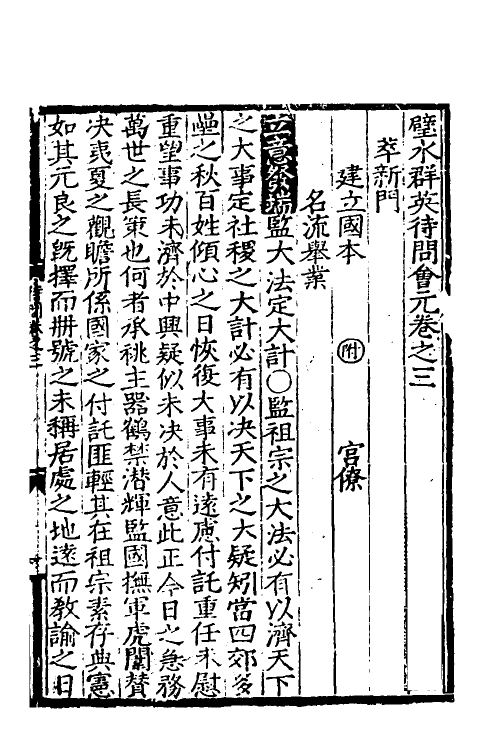 璧水群英待問會元卷之三
萃新門
建立國本 附 官僚
名流舉業
立意發端監大法定大計〇監祖宗之大法必有以濟天下
之大事定社稷之大計必有以决天下之大疑矧當四郊多
壘之秋百姓傾心之日恢復大事未有遠慮付託重任未慰
重望事功未濟於中興疑似未决於人意此正今日之急務
萬世之長策也何者承祧主器鶴禁潜輝監國撫軍虎闈賛
决夷夏之觀瞻所係國家之付託匪輕其在祖宗素存典憲
如其元良之旣擇而冊號之未稱居處之地遂而教諭之日